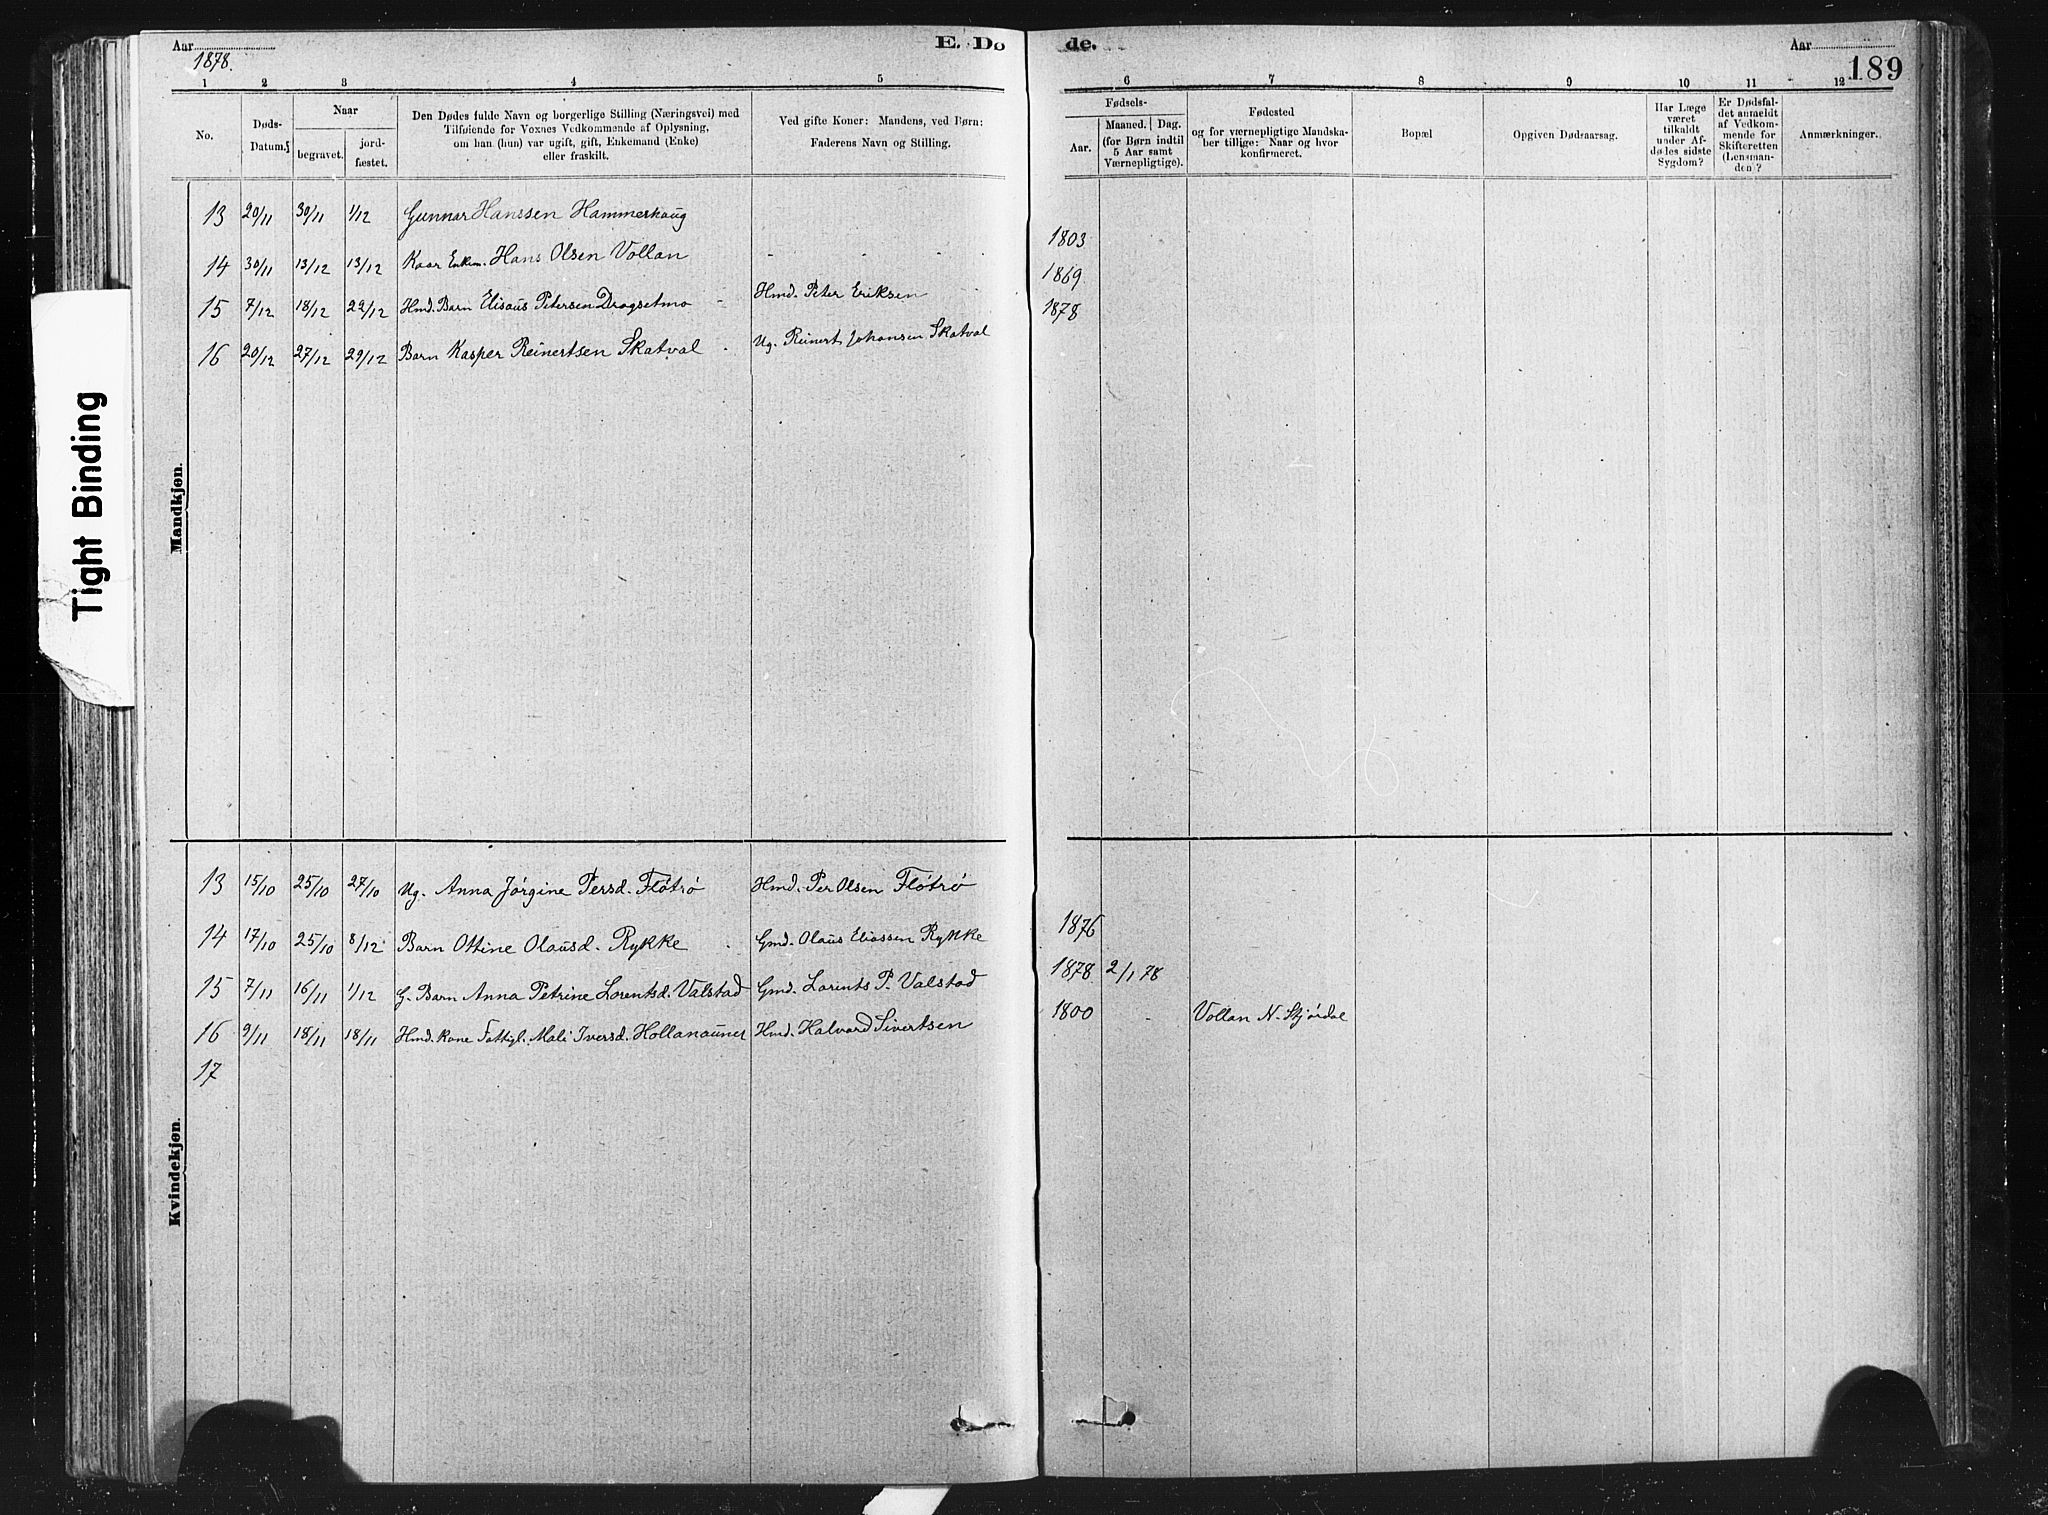 Aar
1878.
E. Dø
de.
Aar
189
1 2 3 4 5 6 7 8 9 10 11 12
No.
Døds-
Datum.
Naar
begravet.
jord-
fæstet.
Den Dødes fulde Navn og borgerlige Stilling (Næringsvei) med
Tilføiende for Voxnes Vedkommende af Oplysning,
om han (hun) var ugift, gift, Enkemand (Enke)
eller fraskilt.
Ved gifte Koner: Mandens, ved Børn:
Faderens Navn og Stilling.
Fødsels-
Aar.
Maaned. Dag.
(for Børn indtil
5 Aar samt
Værnepligtige).
Fødested
og for værnepligtige Mandska-
ber tillige: Naar og hvor
konfirmeret.
Bopæl
Opgiven Dødsaarsag.
Har Læge
været
tilkaldt
under Af-
dødes sidste
Sygdom?
Er Dødsfal-
det anmeldt
af Vedkom-
mende for
Skifteretten
(Lensman-
den)?
Anmærkninger.
Tight Binding
Mandkjøn.
13 20/11 30/11 1/12 Gunnar Hanssen Hammerhaug
14 30/11 13/12 13/12 Kaar Enkm. Hans Olsen Vollan - - - 1803
15 7/12 18/12 22/12 Hmd. Barn Elisaus Petersen Drogsetmo - Hmd. Peter Eriksen 1869
16 20/12 27/12 29/12 Barn Kasper Reinertsen Skatval - Ug. Reinert Johansen Skatval 1878
Kvindekjøn.
13 15/10 25/10 27/10 Ug. Anna Jørgine Persd. Fløtrø Hmd. Per Olsen Fløtrø
14 17/10 25/10 8/12 Barn Ottine Olausd. Rykke - Gmd. Olaus Eliassen Rykke 1876
15 7/11 16/11 1/12 G. Barn Anna Petrine Lorentsd. Valstad Gmd. Lorents P. Valstad 1878 2/1 78
16 9/11 18/11 18/11 Hmd. Kone Fattigl. Mali Iversd. Hollanauner Hmd. Halvard Sivertsen 1800 - Vollan N. Stjørdal
17